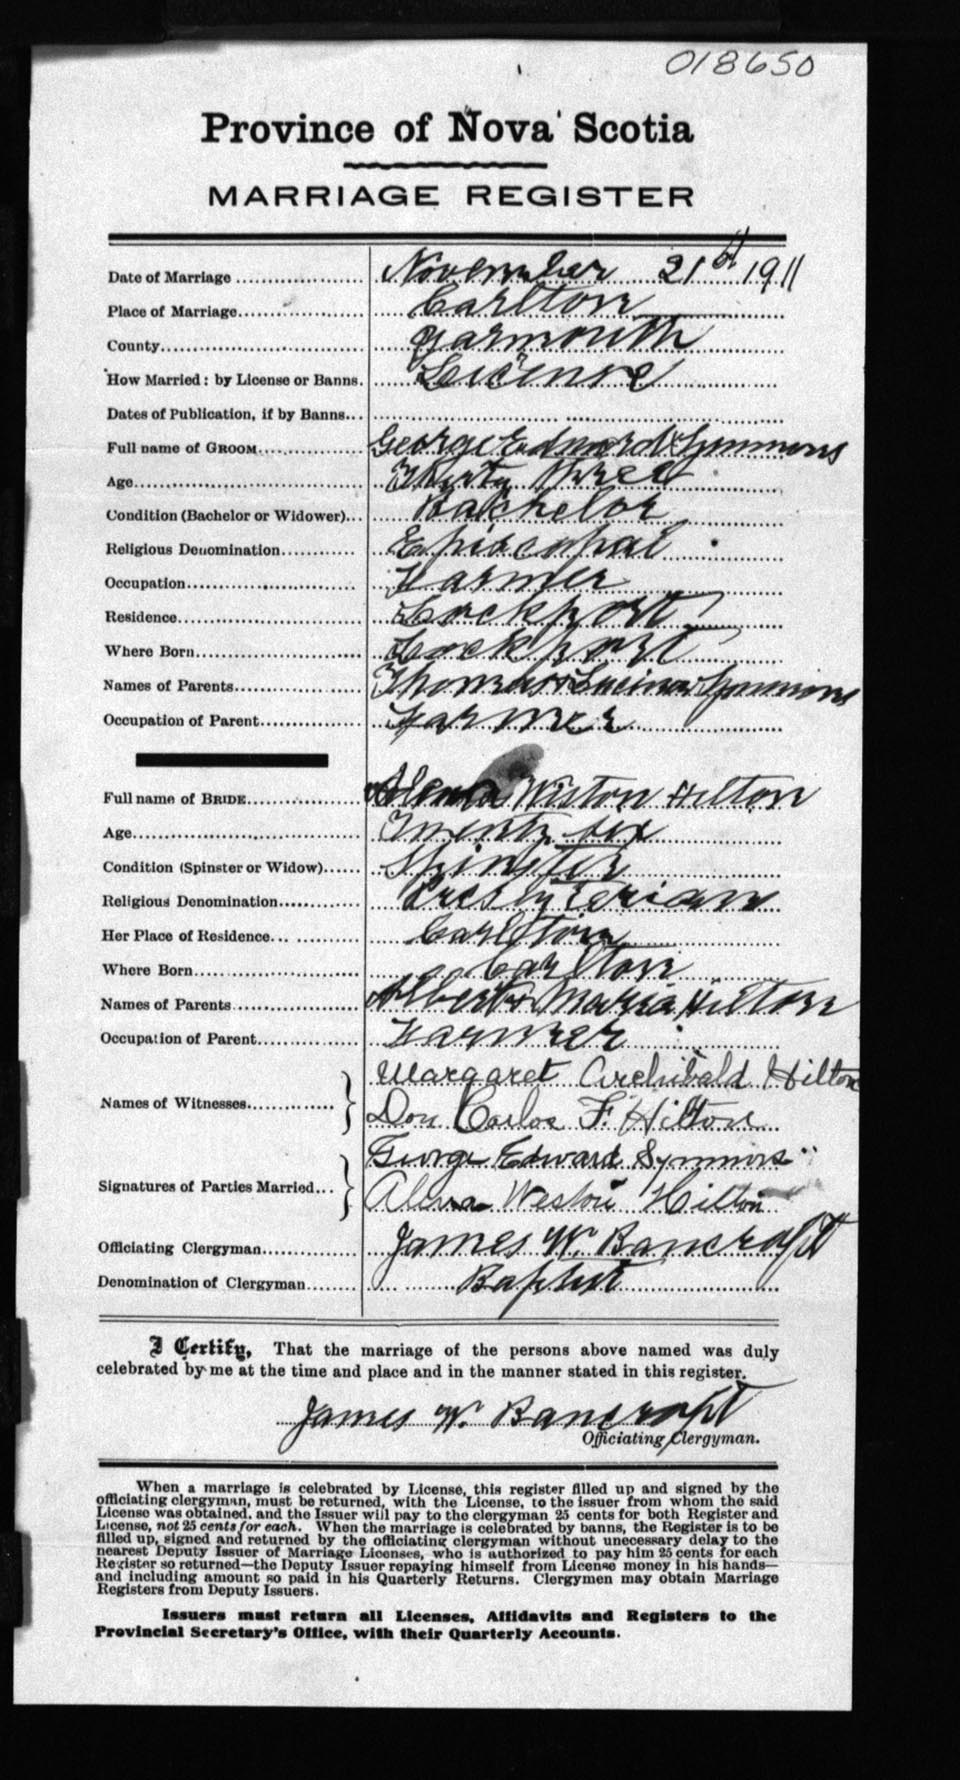 018650
Province of Nova Scotia
MARRIAGE REGISTER
Date of Marriage November 21st 1911
Place of Marriage Carlton
County Yarmouth
How Married: by License or Banns. License
Dates of Publication, if by Banns
Full name of GROOM George Edward Symmons
Age Thirty three
Condition (Bachelor or Widower) Bachelor
Religious Denomination Episcopal
Occupation Farmer
Residence Lockport
Where Born Lockport
Names of Parents Thomas & Symmons
Occupation of Parent Farmer
Full name of BRIDE Weston Hilton
Age Twenty six
Condition (Spinster or Widow) Spinster
Religious Denomination Presbyterian
Her Place of Residence Carlton
Where Born Carlton
Names of Parents Albert & Maria Hilton
Occupation of Parent Farmer
Margaret Archibald Hilton
Names of Witnesses
Don Carlos F. Hilton
George Edward Symmons
Signatures of Parties Married
Weston Hilton
Officiating Clergyman James W. Bancroft
Denomination of Clergyman Baptist
I Certify, That the marriage of the persons above named was duly
celebrated by me at the time and place and in the manner stated in this register.
James W. Bancroft
Officiating Clergyman.
When a marriage is celebrated by License, this register filled up and signed by the
officiating clergyman, must be returned, with the License, to the issuer from whom the said
License was obtained, and the Issuer will pay to the clergyman 25 cents for both Register and
License, not 25 cents for each. When the marriage is celebrated by banns, the Register is to be
filled up, signed and returned by the officiating clergyman without unecessary delay to the
nearest Deputy Issuer of Marriage Licenses, who is authorized to pay him 25 cents for each
Register so returned—the Deputy Issuer repaying himself from License money in his hands—
and including amount so paid in his Quarterly Returns. Clergymen may obtain Marriage
Registers from Deputy Issuers.
Issuers must return all Licenses, Affidavits and Registers to the
Provincial Secretary's Office, with their Quarterly Accounts.